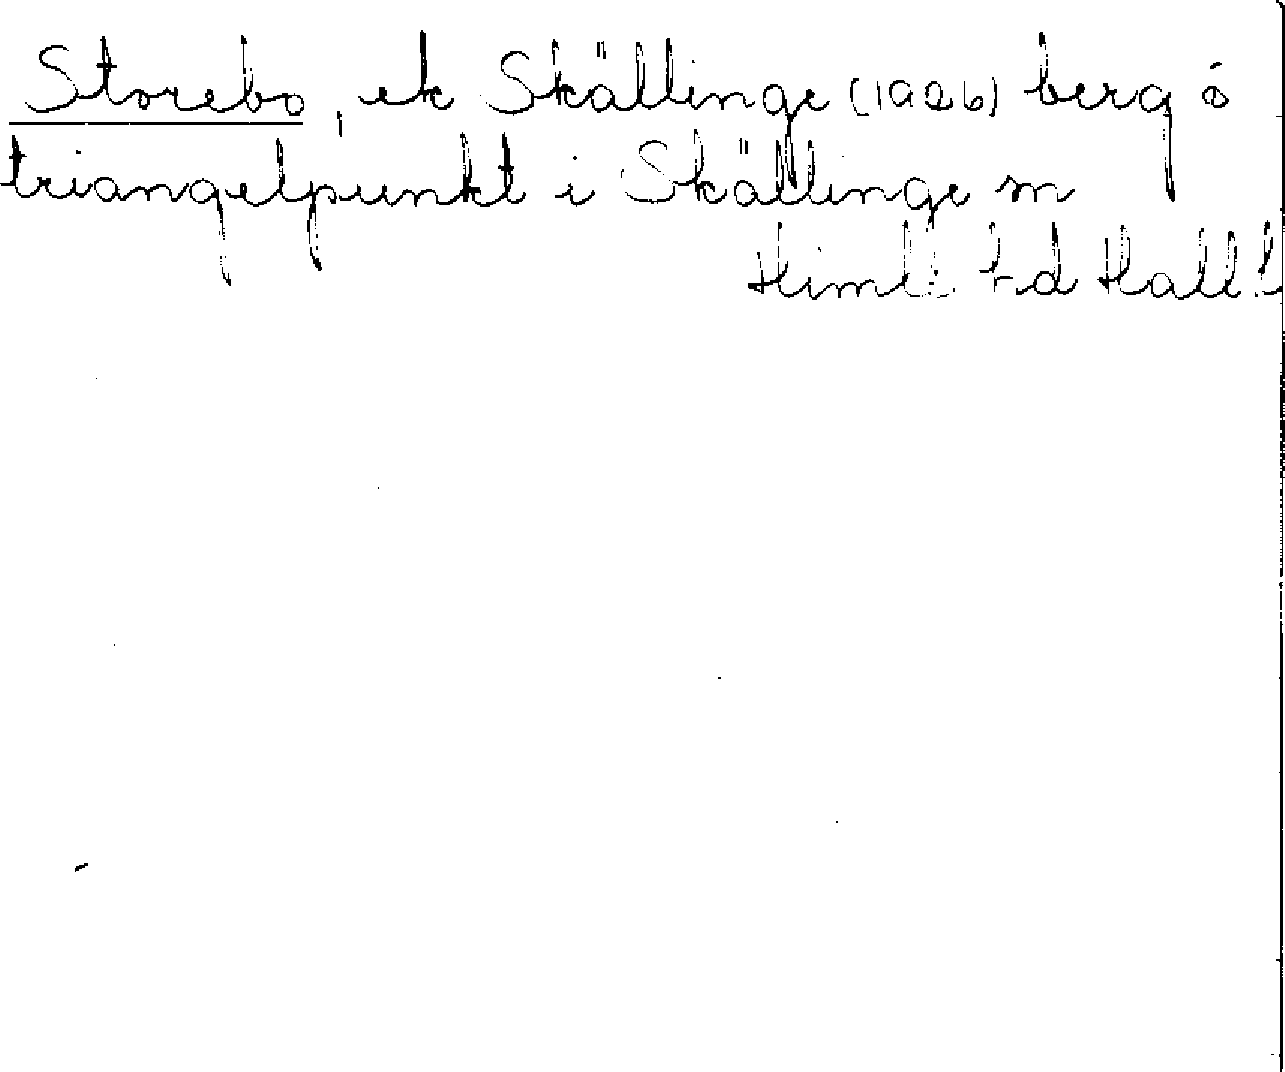 Storebo, ek Skällinge (1926) berg o
triangelpunkt i Skällinge sn
Himle hd Hall l